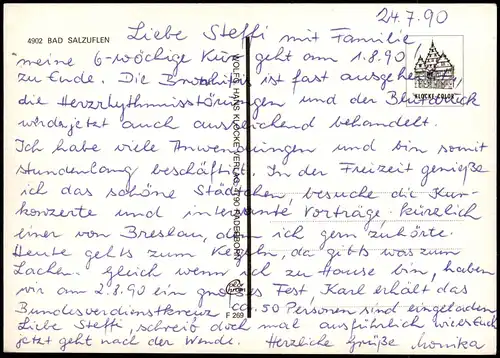 24.7.90
4902 BAD SALZUFLEN
Liebe Steffi mit Familie
meine 6-wöchige Kur geht am 1.8.90
zu Ende. Die Bronchitis ist fast ausgeheilt,
die Herzrhythmusstörungen und der Blutdruck
wird jetzt auch ausreichend behandelt.
Ich habe viele Anwendungen und bin somit
stundenlang beschäftigt. In der Freizeit genieße
ich das schöne Städtchen, besuche die Kur-
konzerte und interessante Vorträge, kürzlich
einer von Breslau, dem ich gern zuhörte.
Heute gehts zum Kegeln, da gibts was zum
Lachen. Gleich wenn ich zu Hause bin, haben
wir am 2.8.90 ein großes Fest, Karl erhält das
Bundesverdienstkreuz ca. 50 Personen sind eingeladen
Liebe Steffi, schreib doch mal ausführlich wie's Euch
jetzt geht nach der Wende. Herzliche Grüße Monika
WOLFG. HANS KLOCKE VERLAG, 4790 PADERBORN
F 269
KLOCKE-COLOR